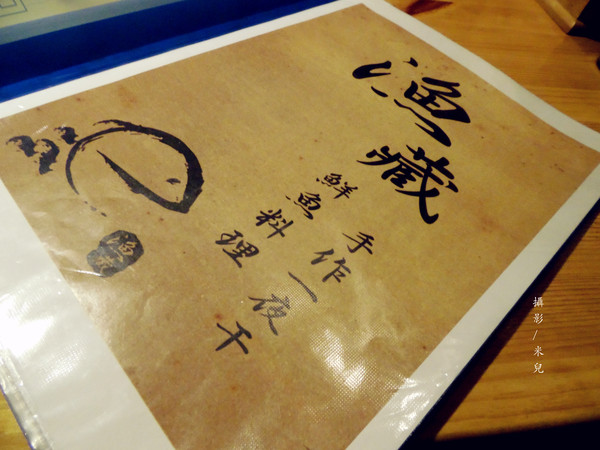 漁藏
手作一夜干
鮮魚料理
漁藏
攝影/來兒